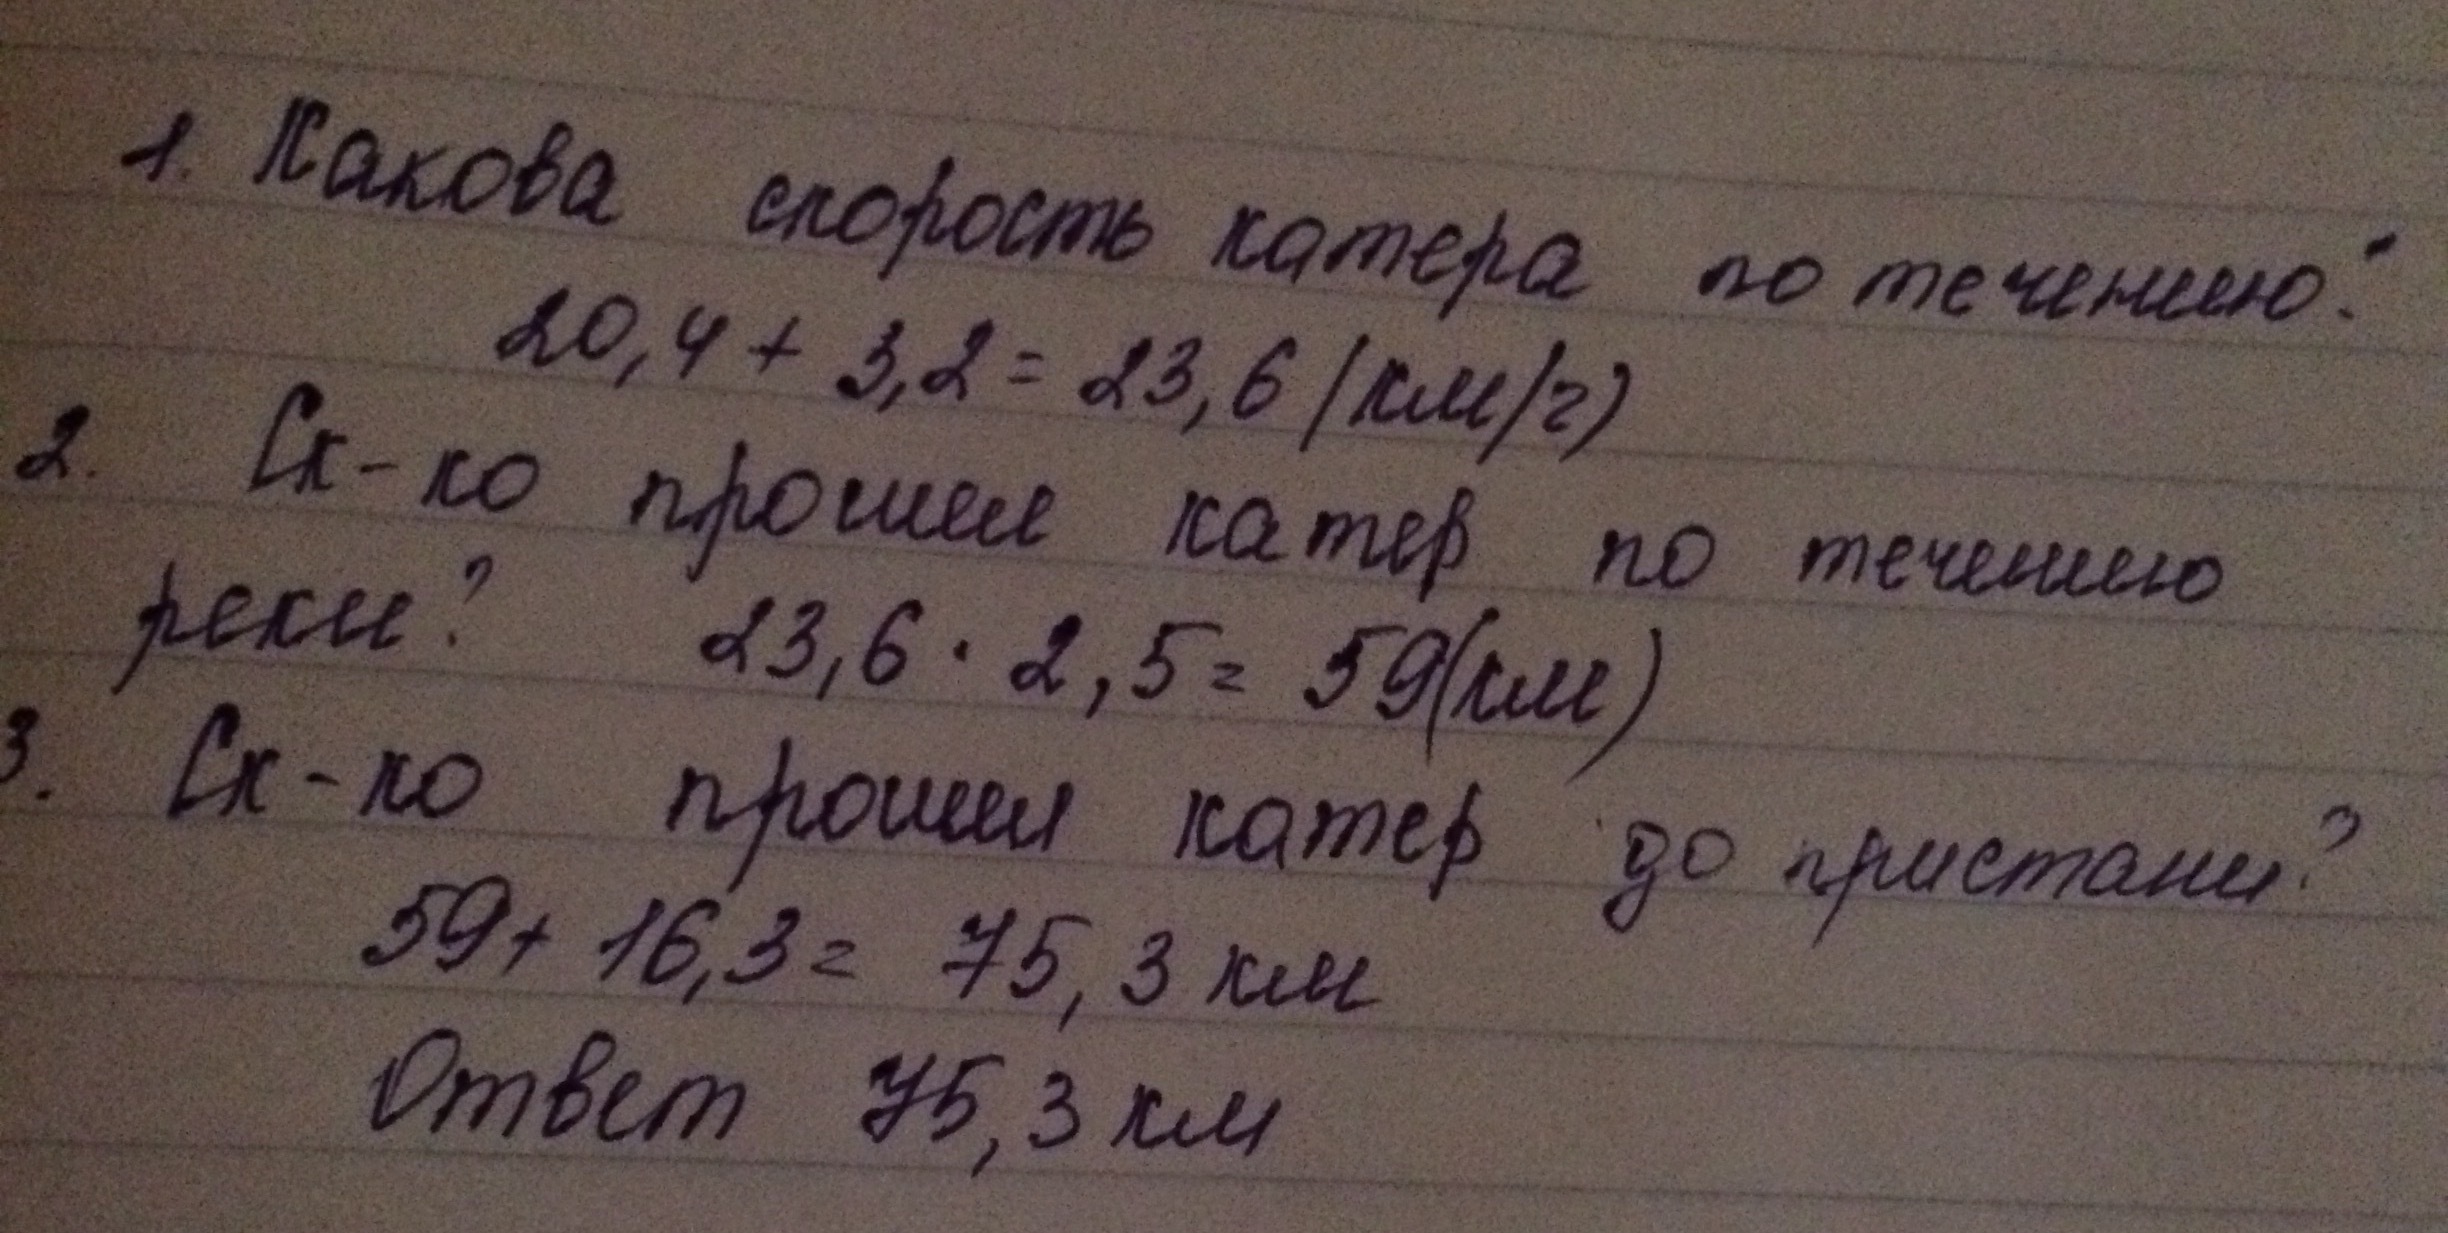 1. Какова скорость катера по течению?
20,4 + 3,2 = 23,6 (км/ч)
2. Ск-ко прошел катер по течению
реки? 23,6 · 2,5 = 59(км)
3. Ск-ко прошел катер до пристани?
59 + 16,3 = 75,3 км
Ответ 75,3 км